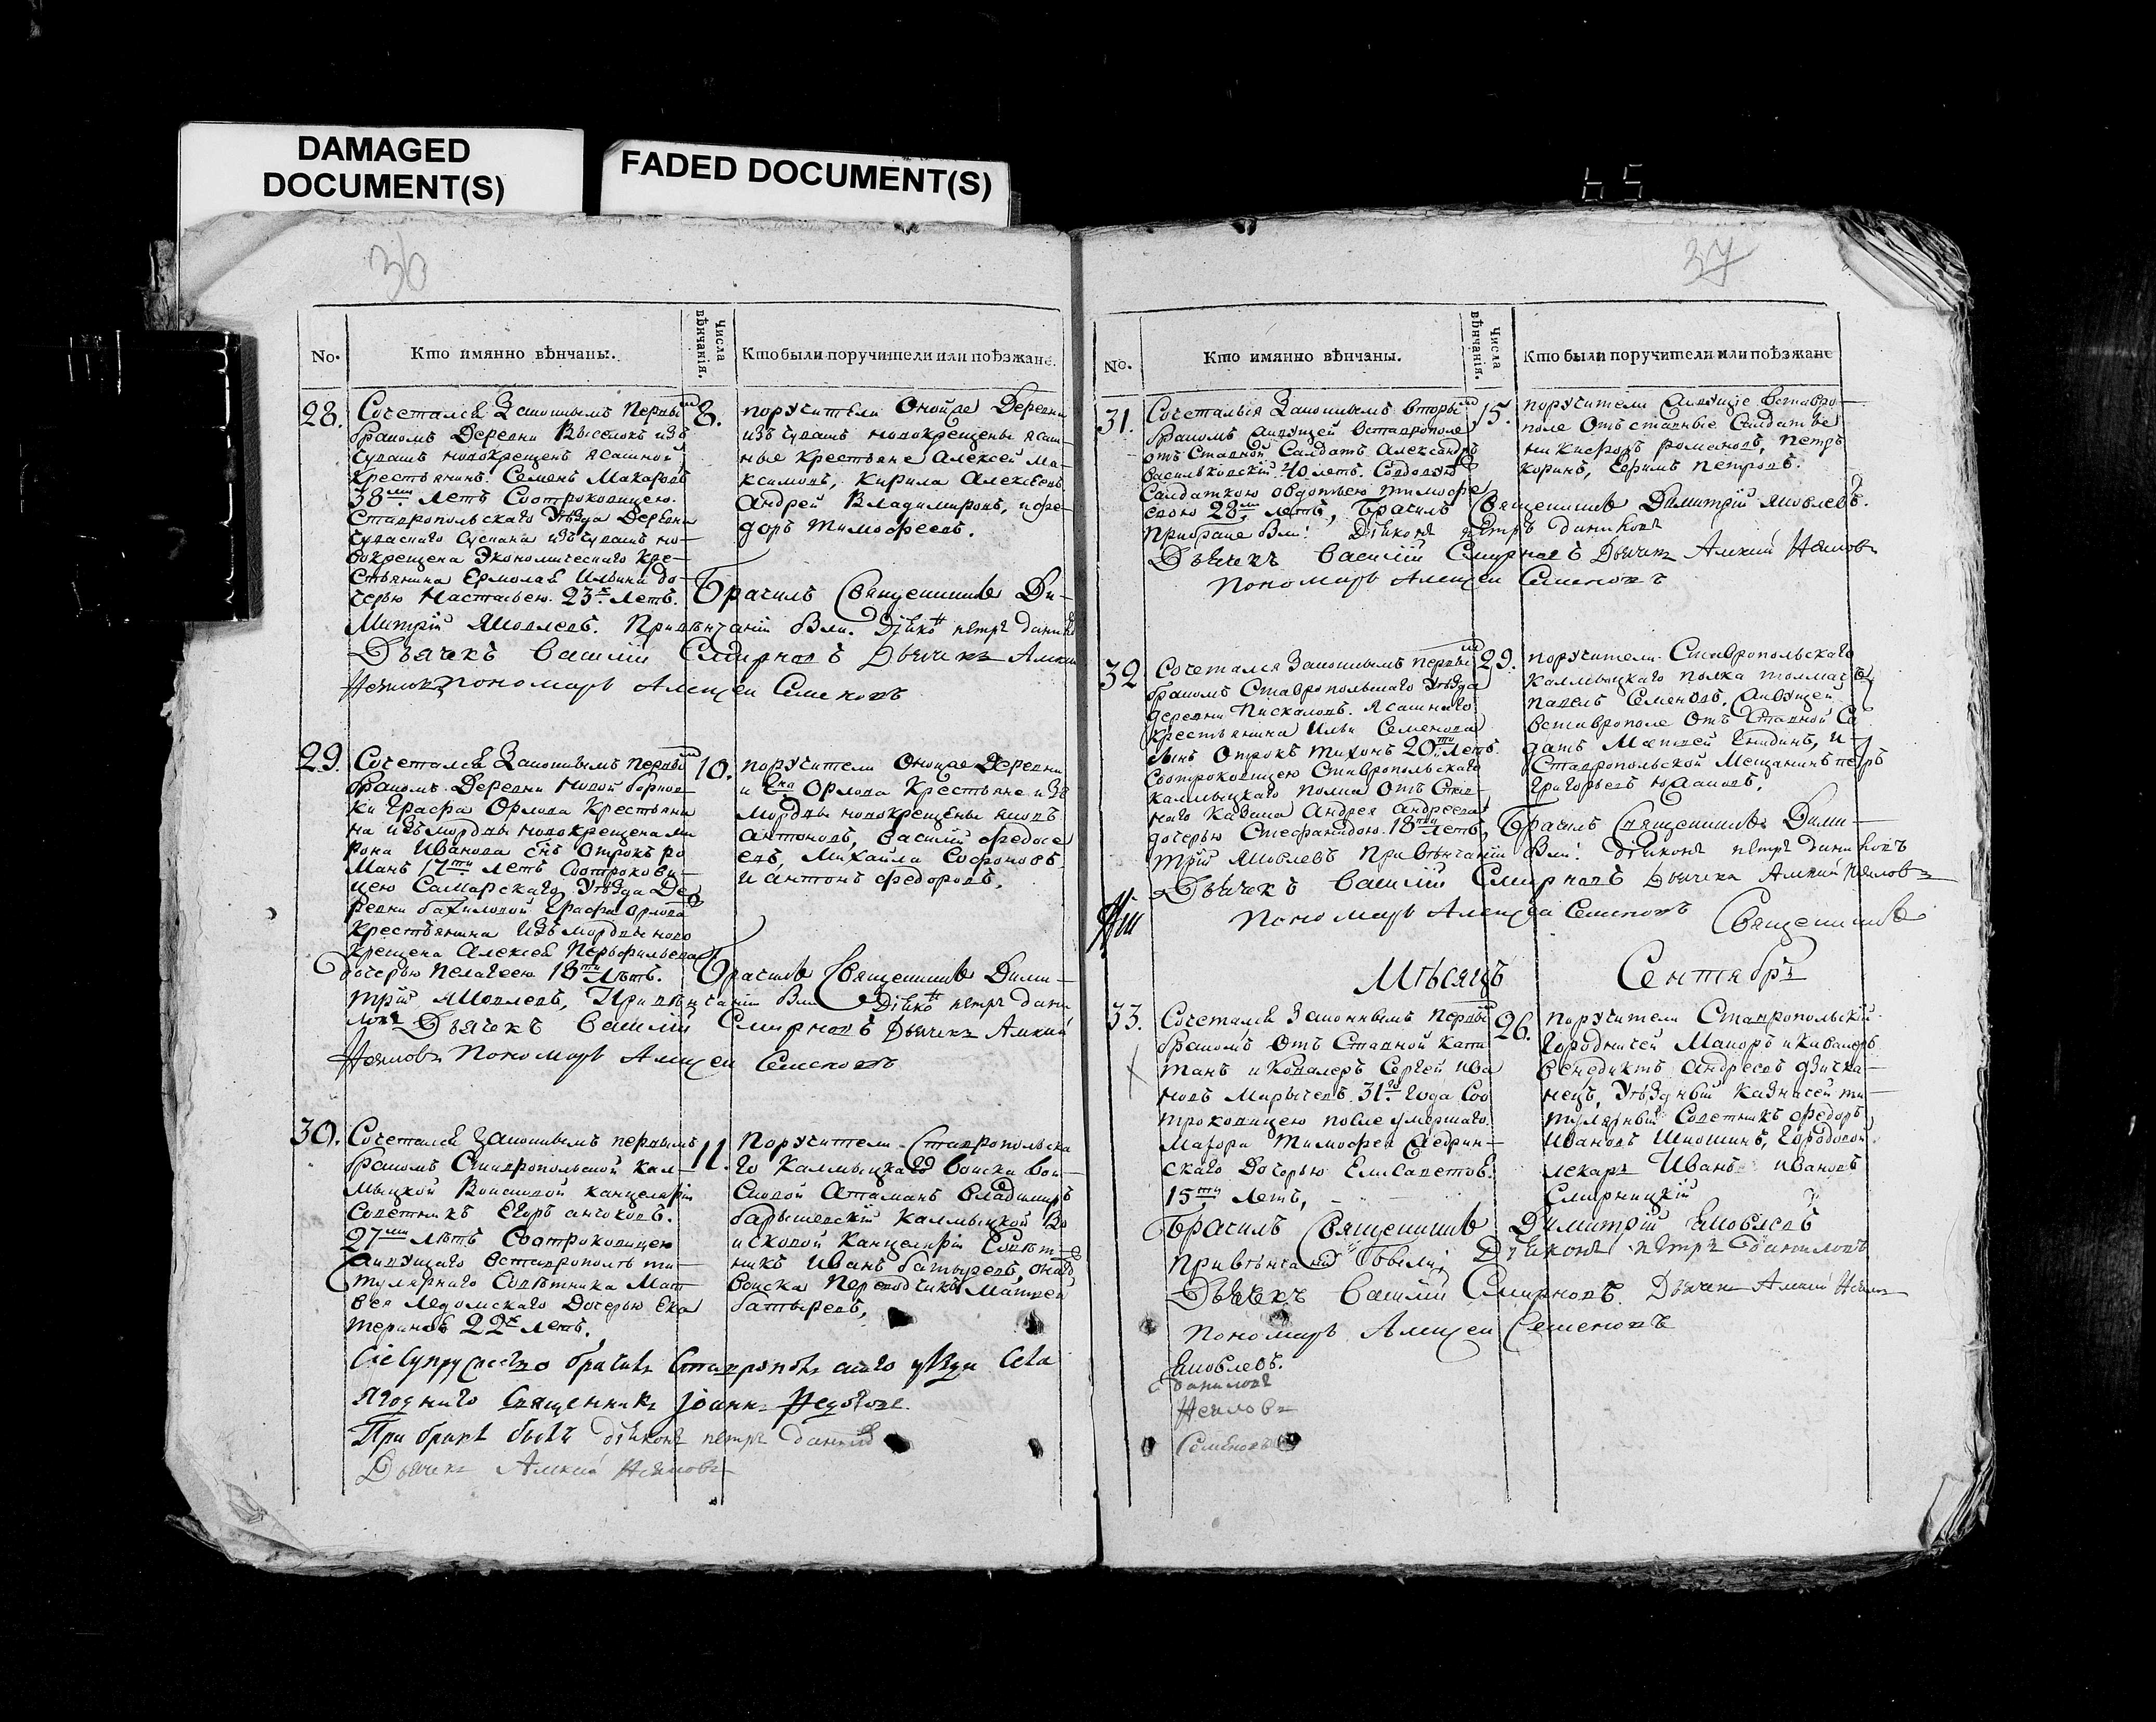 DAMAGED
DOCUMENT(S)
FADED DOCUMENT(S)
36
No.
Кто имянно вѣнчаны.
Числа вѣнчанія.
Кто были поручители или поѣзжане.
28.
Сочетался Законнымъ первы
бракомъ Деревни Выселокъ изъ
чувашъ новокрещенъ ясашной
крестьянинъ Семенъ Макаровъ
38 летъ Соотроковицею
Ставропольскаго Уѣзда Деревни
изъ чувашъ но-
вокрещена Экономическаго Кре-
стьянина Ермолай Ильина до-
черью Настасьею 23 х летъ.
8.
поручители Оной же Деревни
изъ чувашъ новокрещены ясаш-
ные крестьяне Алексей Ма-
ксимовъ, Кирила Алексеевъ
Андрей Владимировъ, и фе-
доръ Тимофеевъ.
Брачилъ Священникъ Ди-
митрій Яковлевъ. При венчаніи были. Діяконъ петръ
Дьячекъ Василій Смирновъ Дьячекъ
пономарь Алексеи Семеновъ
29.
Сочетался Законнымъ первы
бракомъ Деревни Новой
ки Графа Орлова Крестьяни
на изъ мордвы новокрещена ми
рона Иванова снъ Отрокъ ро
манъ 17 ти летъ Соотрокови-
цею Самарскаго Уѣзда Де
ревни бахиловой Графа Орлова
крестьянина Изъ мордвы ново
крещена Алексея Перфильева
дочерью Пелагеею 18 ти Летъ.
10.
поручители Оной же Деревни
и Орлова Крестьяне изъ
мордвы новокрещены
антоновъ, Василій федосе
евъ, Михайла Софоновъ
и антонъ федоровъ.
Брачилъ Священникъ Дими-
трій Яковлевъ, При венчаніи были Діяконъ петръ дани
ловъ Дьячекъ Василій Смирновъ Дьячекъ
пономарь Алексеи Семеновъ
30.
Сочетался Законнымъ первымъ
бракомъ Ставропольской Кал-
мыцкой Войсковой канцелярій
Советникъ Егоръ
27 летъ Соотроковицею
живущаго в ставрополѣ ти-
тулярнаго Советника Мат
вея Ледомскаго Дочерью Ека
териною 22 х летъ.
11.
Поручители Ставропольска
го Калмыцкаго Войска Вой-
сковой Атаманъ Владимиръ
барышевскій Калмыцкой Во
исковой Канцелярій Совет-
никъ Иванъ батыревъ, онаго
войска Переводчикъ Матвей
батыревъ,
Сіе Супружество брачилъ Ставропольскаго уѣзда Села
Ягоднаго Священникъ Іоаннъ
При браке былъ діяконъ петръ
Дьячекъ
37
No.
Кто имянно вѣнчаны.
Числа вѣнчанія.
Кто были поручители или поѣзжане
31.
Сочетался Законнымъ вторы
бракомъ живущей в ставрополе
отъ Ставной Салдатъ Александръ
васильковскій 40 летъ. Совдовою
Салдаткою Овдотьею тимофе
евою 28 летъ,
15.
поручители живущіе в ставро-
поле Отъ ставные Салдаты
никифоръ романовъ, петръ
коринъ, Ефимъ петровъ.
Брачилъ Священникъ Димитрій Яковлевъ.
При браке были: Діяконъ петръ даниловъ
Дьячекъ Василій Смирновъ Дьячекъ
пономарь Алексеи Семеновъ
32
Сочетался Законнымъ первы
бракомъ Ставропольскаго Уѣзда
деревни Пискаловъ. Ясашнаго
Крестьянина Ильи Семенова
сынъ Отрокъ Тихонъ 20 ти летъ.
Соотроковицею Ставропольскаго
калмыцкаго полка Отъ Став-
наго Казака Андрея Андреева
дочерью Стефанидою 18 ти летъ,
29.
поручители Ставропольскаго
калмыцкаго полка толмачъ
павелъ Семеновъ, живущей
в ставрополе Отъ Ставной Сал
датъ Матвей и
Ставропольской Мещанинъ петръ
Григорьевъ
Брачилъ Священникъ Дими-
трій Яковлевъ При Венчаніи были: діяконъ петръ даниловъ
Дьячекъ Василій Смирновъ Дьячекъ
пономарь Алексеи Семеновъ
Священникъ
Мѣсяцъ Сентябрь
33.
Сочетался Законнымъ первы
бракомъ Отъ Ставной капи
танъ и Ковалеръ Сергей ива
новъ 31 го Года Соо
троковицею после умершаго
Маіора Тимофея
скаго Дочерью Елисаветою
15 ти Летъ,
26.
Поручители Ставропольскій
Городничей Маиоръ и кавалеръ
Венедиктъ Андреевъ
нецъ, Уѣздный Казначей ти-
тулярный Советникъ федоръ
Ивановъ Городовой
лекарь Иванъ ивановъ
Смирницкій
Брачилъ Священникъ Димитрій Яковлевъ
При венчаніи были, Діяконъ петръ Даниловъ
Дьячекъ Василій Смирновъ. Дьячекъ
пономарь Алексеи Семеновъ
Яковлевъ.
даниловъ
Семеновъ